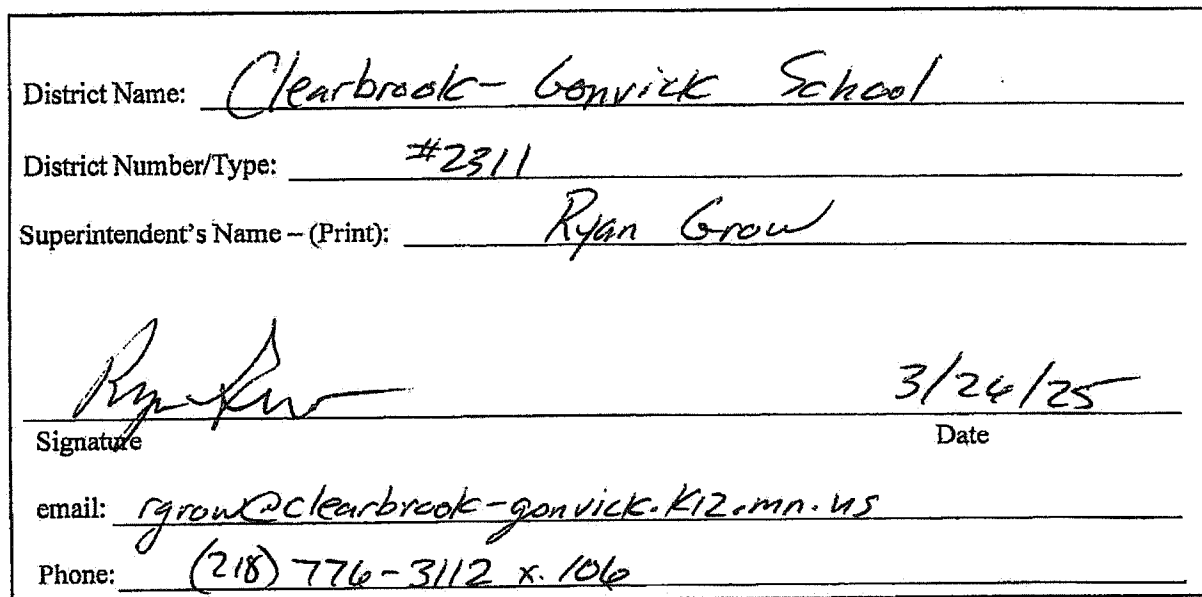 District Name: Clearbrook-Gonvick School
District Number/Type: #2311
Superintendent's Name – (Print): Ryan Grow
3/26/25
Signature Date
email: rgrow@clearbrook-gonvick.k12.mn.us
Phone: (218) 776-3112 x.106